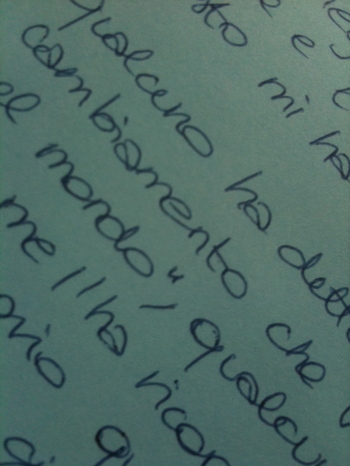 e
sto mi ha
qualcuno ha dett
cambiamento che
el mondo" - qualcu
me "ha ricon
nio
di